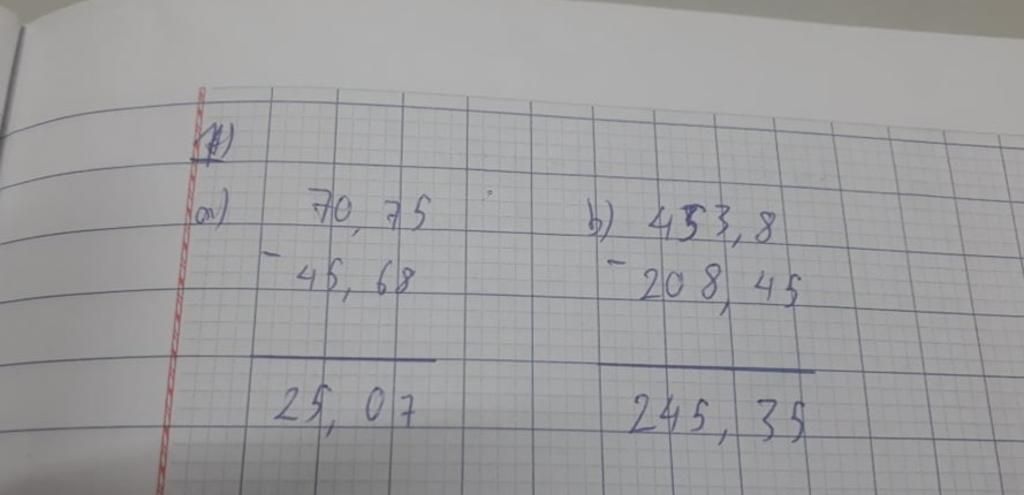 1)
a) 70,75 b) 453,8
- 45,68 - 208,45
25,07 245,35